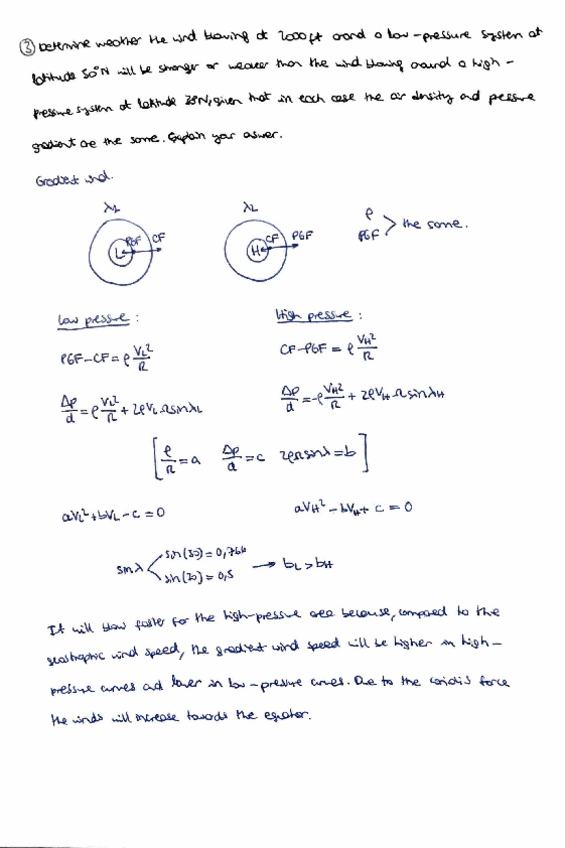 ③ Determine weather the wind blowing at 2000ft around a low-pressure system at
latitude 50°N will be stronger or weaker than the wind blowing around a high-
pressure system at latitude 30°N, given that in each case the air density and pressure
gradient are the same. Explain your answer.
Gradient wind.
λL λL
L PGF CF H CF PGF ρ PGF > the same.
Low pressure: High pressure:
PGF-CF = ρ VL²/R CF-PGF = ρ VH²/R
Δp/d = ρ VL²/R + 2ρVLΩsinλL Δp/d = -ρ VH²/R + 2ρVHΩsinλH
[ρ/R = a Δp/d = c 2ρΩsinλ = b]
aVL² + bVL - c = 0 aVH² - bVH + c = 0
sinλ < sin(50) = 0,766 sin(30) = 0,5 → bL > bH
It will blow faster for the high-pressure area because, compared to the
geostrophic wind speed, the gradient wind speed will be higher in high-
pressure curves and lower in low-pressure curves. Due to the coriolis force
the winds will increase towards the equator.